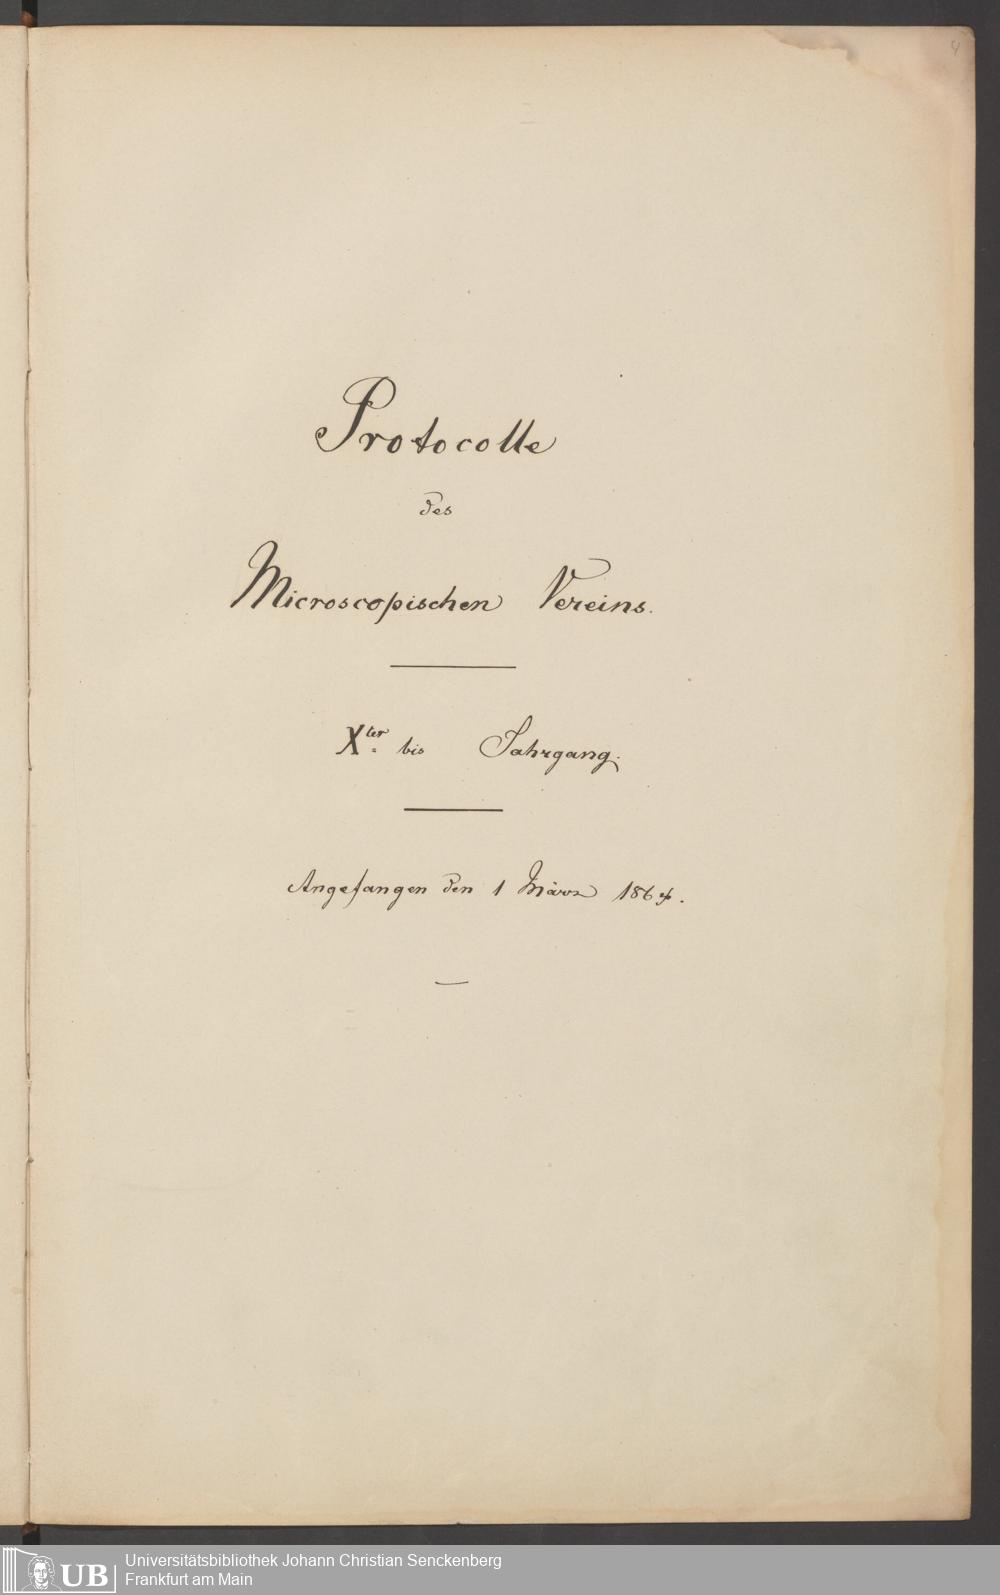 4
Protocolle
des
Microscopischen Vereins.
Xter bis Jahrgang.
Angefangen den 1 März 1864.
UB
Universitätsbibliothek Johann Christian Senckenberg
Frankfurt am Main